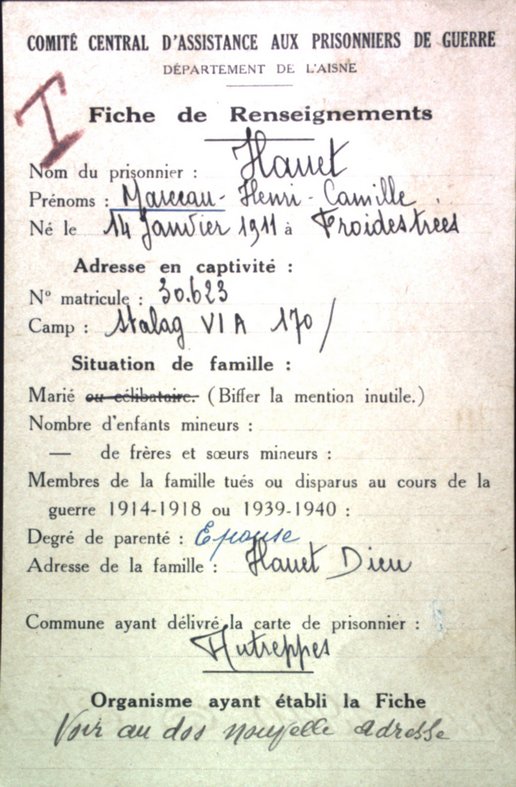 COMITÉ CENTRAL D'ASSISTANCE AUX PRISONNIERS DE GUERRE
DÉPARTEMENT DE L'AISNE
I
Fiche de Renseignements
Nom du prisonnier : Hauet
Prénoms : Marceau - Henri - Camille
Né le 14 Janvier 1911 à Froidestrées
Adresse en captivité :
N° matricule : 30.623
Camp : Stalag VI A 170 /
Situation de famille :
Marié ou célibataire. (Biffer la mention inutile.)
Nombre d'enfants mineurs :
— de frères et sœurs mineurs :
Membres de la famille tués ou disparus au cours de la
guerre 1914-1918 ou 1939-1940 :
Degré de parenté : Epouse
Adresse de la famille : Hauet Dieu
Commune ayant délivré la carte de prisonnier :
Autreppes
Organisme ayant établi la Fiche
Voir au dos nouvelle adresse